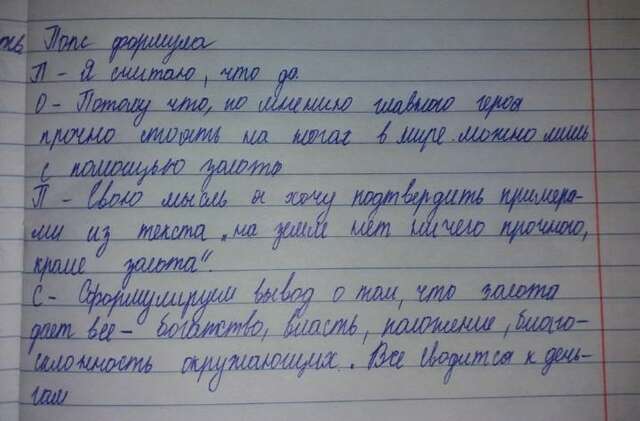 ть Попс формула
П - Я считаю, что да.
О - Потому что, по мнению главного героя
прочно стоять на ногах в мире можно лишь
с помощью золота
П - Свою мысль я хочу подтвердить примера-
ми из текста „на земле нет ничего прочного,
кроме золота".
С - Сформулируем вывод о том, что золото
дает все - богатство, власть, положение, благо-
склонность окружающих. Все сводится к день-
гам